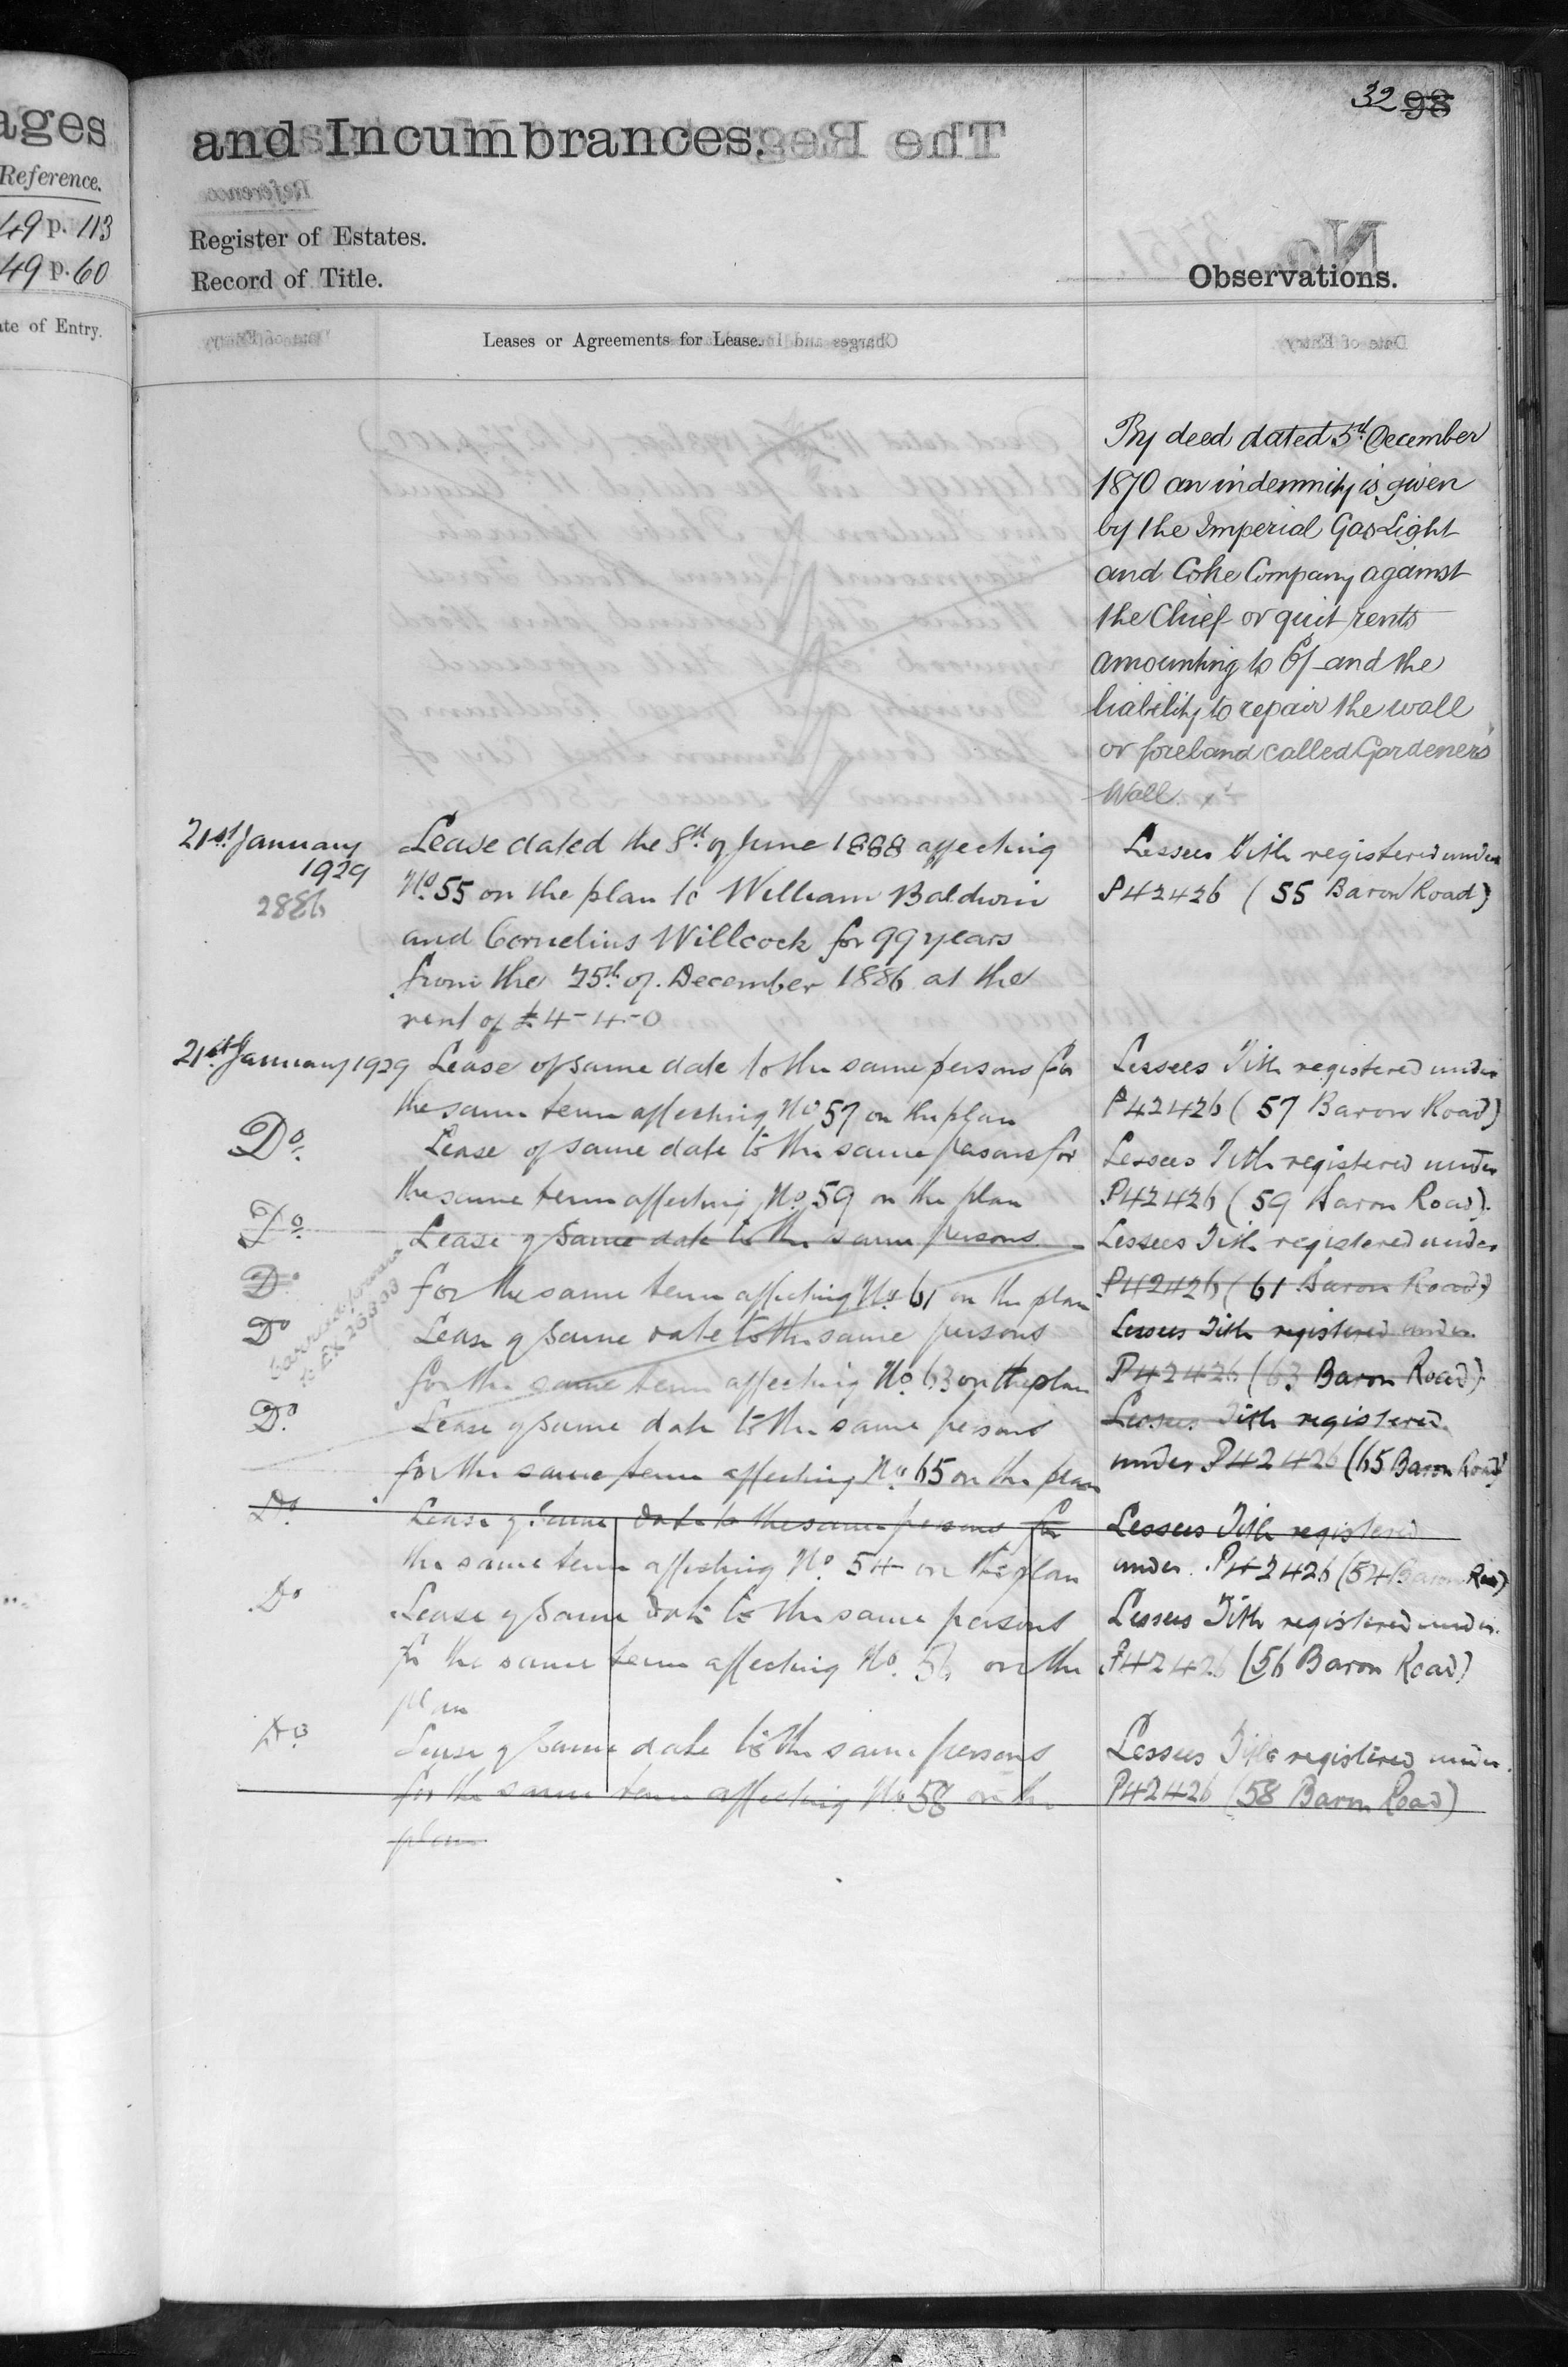 ages
Reference.
49 p. 113
49 p. 60
ate of Entry.
32 98
and Incumbrances.
Register of Estates.
Record of Title.
Observations.
Leases or Agreements for Lease.
By deed dated 5th December
1870 an indemnity is given
by the Imperial Gas Light
and Coke Company against
the Chief or quit rents
amounting to 6/- and the
liability to repair the wall
or foreland called Gardeners
Wall.
21st January
1929
2886
Lease dated the 8th of June 1888 affecting
No. 55 on the plan to William Baldwin
and Cornelius Willcock for 99 years
from the 25th of December 1886 at the
rent of £4-4-0
Lessees Title registered under
P42426 (55 Baron Road)
21st January 1929 Lease of same date to the same persons for
the same term affecting No 57 on the plan
Lessees Title registered under
P42426 (57 Baron Road)
Do. Lease of same date to the same persons for
the same term affecting No. 59 on the plan
Lessees Title registered under
P42426 (59 Baron Road).
Do Lease of same date to the same persons
Do for the same term affecting No. 61 on the plan
Lessees Title registered under
P42426 (61 Baron Road)
Do Lease of same date to the same persons
for the same term affecting No. 63 on the plan
Lessees Title registered under
P42426 (63 Baron Road)
Do. Lease of same date to the same persons
for the same term affecting No. 65 on the plan
Lessees Title registered
under P42426 (65 Baron Road)
Do. Lease of same date to the same persons for
the same term affecting No. 54 on the plan
Lessees Title registered
under P42426 (54 Baron Road)
Do Lease of same date to the same persons
for the same term affecting No. 56 on the
plan
Lessees Title registered under
P42426 (56 Baron Road)
Do Lease of same date to the same persons
for the same term affecting No 58 on the
plan
Lessees Title registered under
P42426 (58 Baron Road)